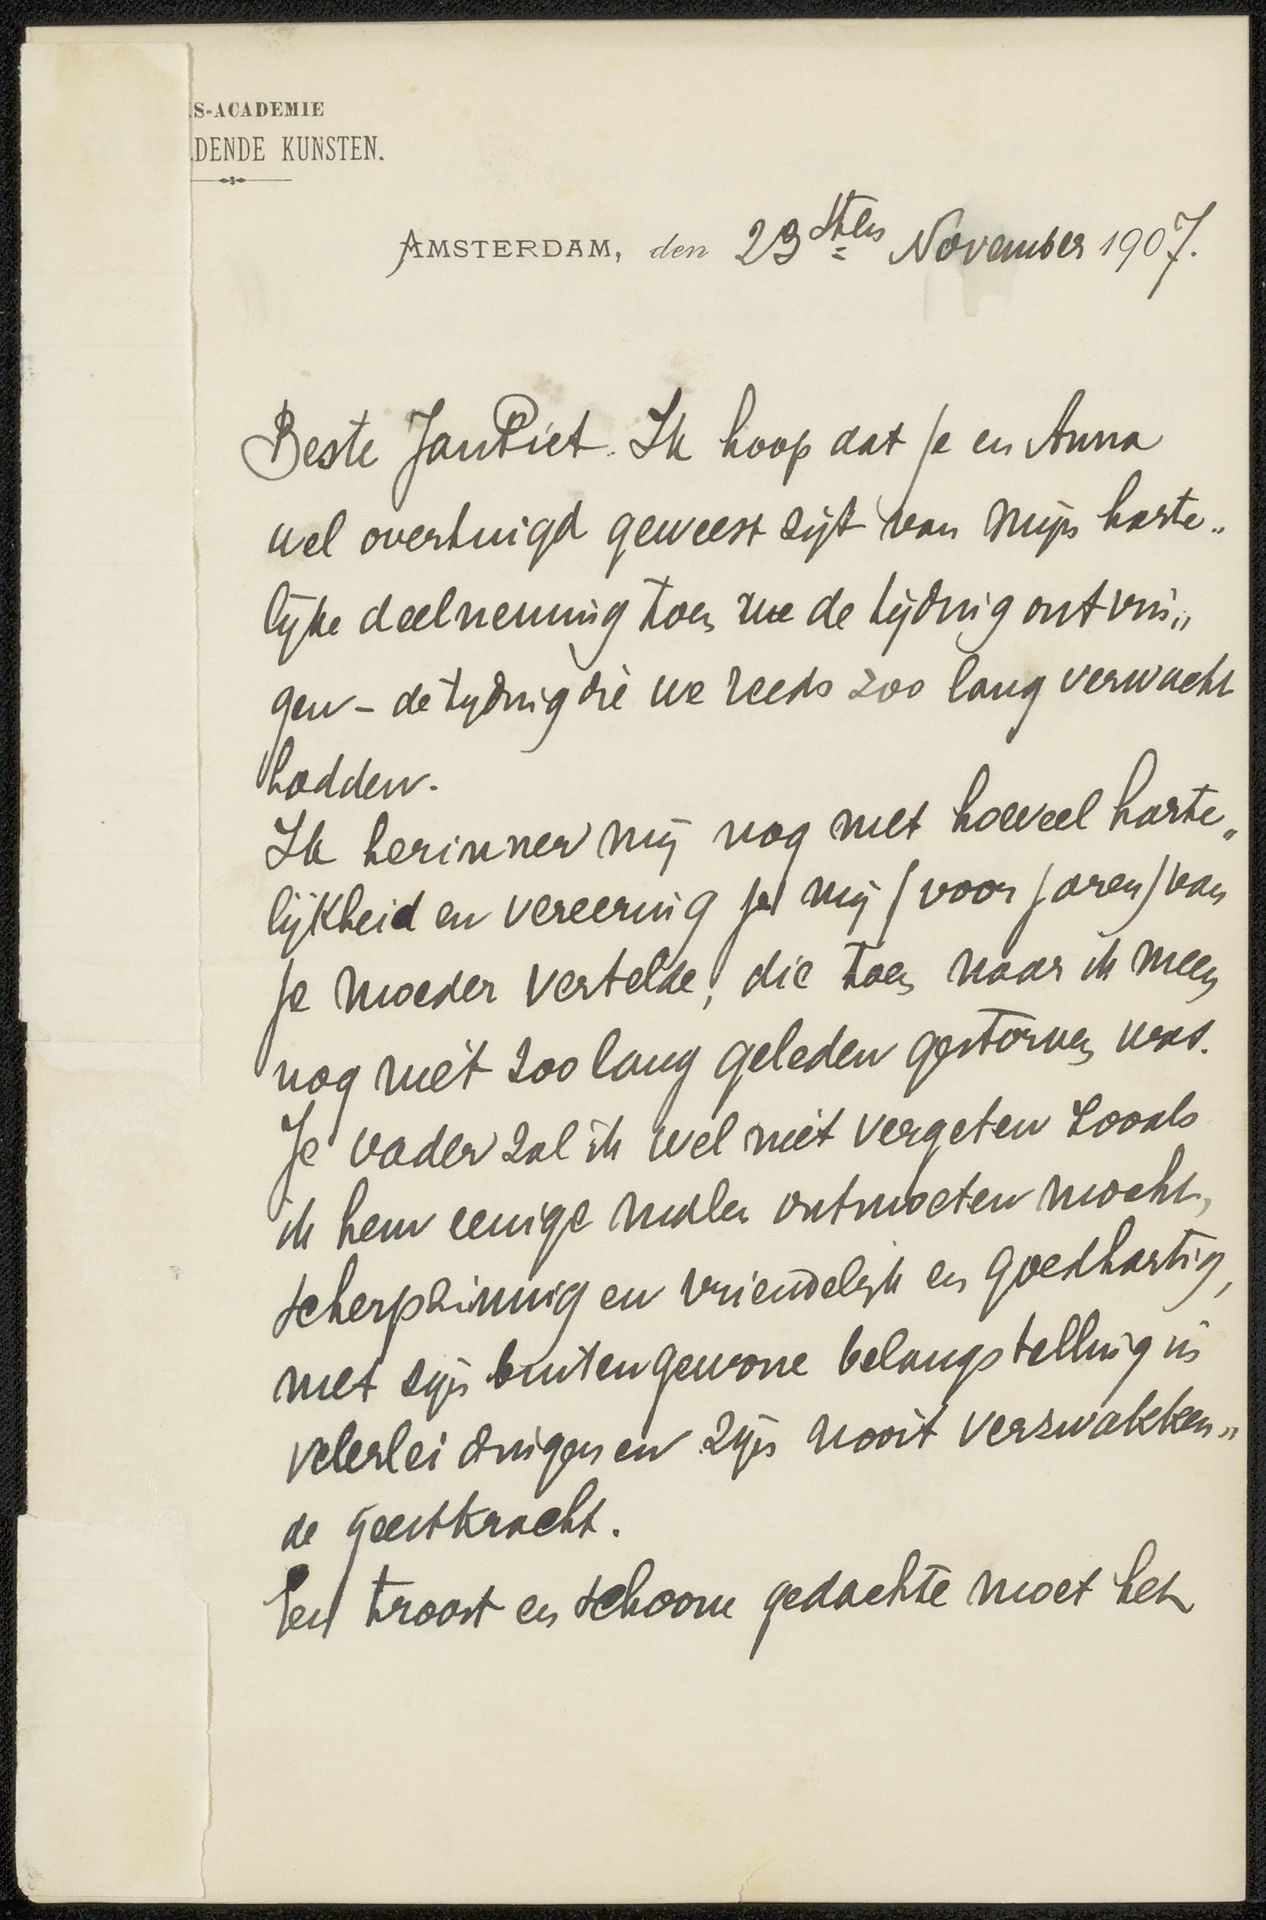 S-ACADEMIE
DENDE KUNSTEN.
AMSTERDAM, den 23sten November 1907.
Beste JanPiet. Ik hoop dat je en Anna
wel overtuigd geweest zijt van mijn harte„
lijke deelneming toen we de tijding ontvin„
gen – de tijding die we reeds zoo lang verwacht
hadden.
Ik herinner mij nog met hoeveel harte„
lijkheid en vereering je mij (voor jaren) van
je moeder vertelde, die toen naar ik meen
nog niet zoo lang geleden gestorven was.
Je vader zal ik wel niet vergeten zooals
ik hem eenige malen ontmoeten mocht,
scherpzinnig en vriendelijk en goedhartig,
met zijn buitengewone belangstelling in
velerlei dingen en zijn nooit verzwakken„
de geestkracht.
Een troost en schoone gedachte moet het